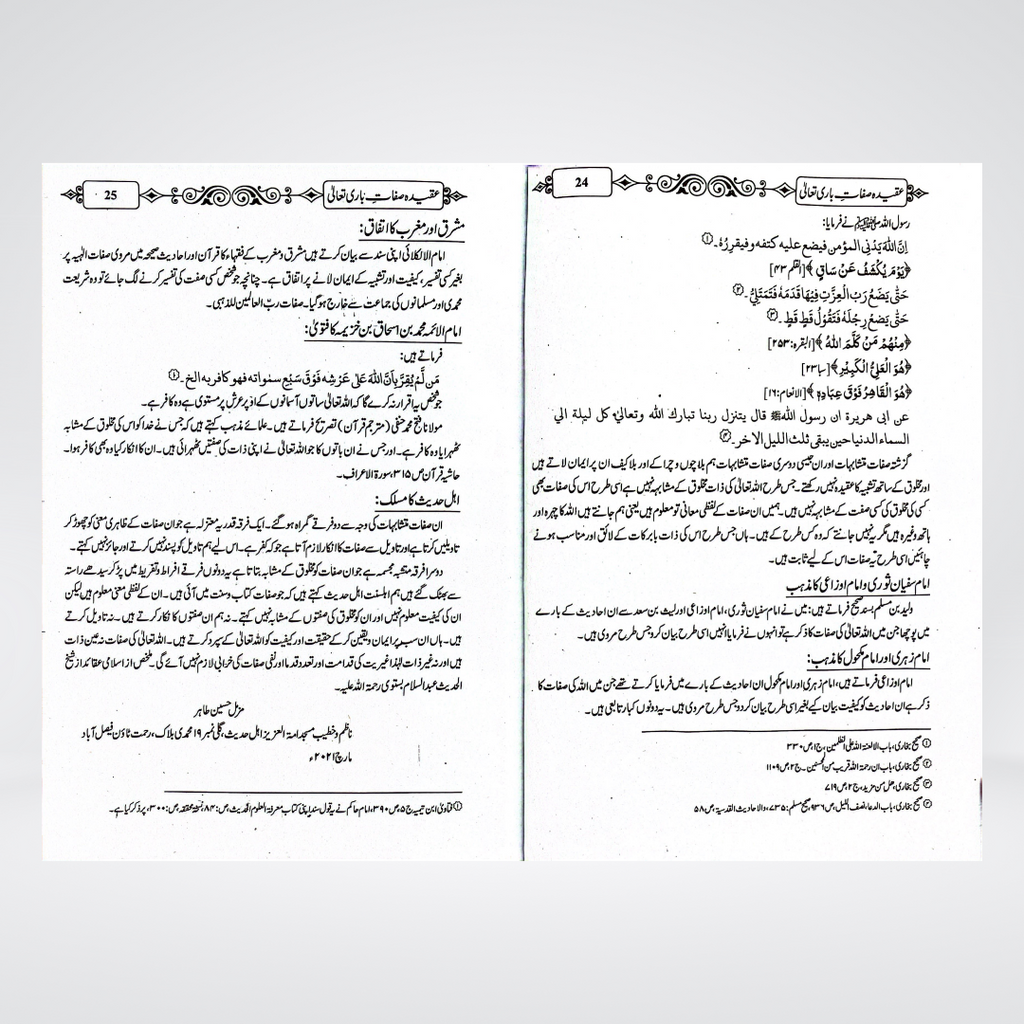 عقیدہ صفاتِ باری تعالیٰ
24
رسول اللہ ﷺ نے فرمایا:
اِنَّ اللّٰهَ يَدْنِی المؤمن فيضع عليه كتفه و فيقررُهٗ۔①
﴿يَوْمَ يُكْشَفُ عَنْ سَاقٍ﴾[القلم ۴۳]
حَتّٰى يَضَعُ رَبُّ الْعِزَّتِ فِيْهَا قَدَمَهٗ فَتَمْتَلِیُّ۔②
حَتّٰى يَضَعُ رِجْلَهٗ فَتَقُوْلُ قَطٍ قَطٍ۔③
﴿مِنْهُمْ مَنْ كَلَّمَ اللّٰهُ﴾[البقرہ:۲۵۳]
﴿هُوَ الْعَلِیُّ الْكَبِيْرِ﴾[سبا ۲۳]
﴿هُوَ الْقَاهِرُ فَوْقَ عِبَادِهٖ﴾[الانعام:۱۶]
عن ابی هريرة ان رسول اللهﷺ قال يتنزل ربنا تبارك الله وتعالىٰ كل ليلة الي
السماء الدنيا حين يبقى ثلث الليل الاخر۔④
گزشتہ صفات متشابہات اور ان جیسی دوسری صفات متشابہات ہم بلا چوں و چرا کے اور بلا کیف ان پر ایمان لاتے ہیں
اور مخلوق کے ساتھ تشبیہ کا عقیدہ نہیں رکھتے۔ جس طرح اللہ تعالیٰ کی ذات مخلوق کے مشابہ نہیں ہے اسی طرح اس کی صفات بھی
کسی کی مخلوق کی کسی صفت کے مشابہ نہیں ہیں۔ ہمیں ان صفات کے لفظی معانی تو معلوم ہیں یعنی ہم جانتے ہیں اللہ کا چہرہ اور
ہاتھ وغیرہ ہیں مگر یہ نہیں جانتے کہ وہ کس طرح کے ہیں۔ ہاں جس طرح اس کی ذات بابرکات کے لائق اور مناسب ہونے
چاہئیں اسی طرح یہ صفات اس کے لیے ثابت ہیں۔
امام سفیان ثوری و امام اوزاعی کا مذہب
ولید بن مسلم بسند صحیح فرماتے ہیں: میں نے امام سفیان ثوری، امام اوزاعی اور لیث بن سعد سے ان احادیث کے بارے
میں پوچھا جن میں اللہ تعالیٰ کی صفات کا ذکر ہے تو انہوں نے فرمایا انہیں اسی طرح بیان کرو جس طرح مروی ہیں۔
امام زہری اور امام مکحول کا مذہب:
امام اوزاعی فرماتے ہیں، امام زہری اور امام مکحول ان احادیث کے بارے میں فرمایا کرتے تھے جن میں اللہ کی صفات کا
ذکر ہے ان احادیث کو کیفیت بیان کیے بغیر اسی طرح بیان کردو جس طرح مروی ہیں۔ یہ دونوں کبار تابعی ہیں۔
① صحیح بخاری، باب الا لعنۃ اللہ علی الظلمین، ج۱ ص ۳۳۰
② صحیح بخاری، باب ان رحمۃ اللہ قریب من المحسنین۔ ج۲ ص ۱۱۰۹
③ صحیح بخاری، ھل من مزید، ج۲ ص ۷۱۹
④ صحیح بخاری، باب الدعا نصف اللیل، ص ۹۳۶، صحیح مسلم: ۷۳۵، والا حادیث القدسیۃ، ص ۵۸
عقیدہ صفاتِ باری تعالیٰ
25
مشرق اور مغرب کا اتفاق:
امام الالکلائی اپنی سند سے بیان کرتے ہیں مشرق و مغرب کے فقہاء کا قرآن اور احادیث صحیحہ میں مروی صفات الٰہیہ پر
بغیر کسی تفسیر، کیفیت اور تشبیہ کے ایمان لانے پر اتفاق ہے۔ چنانچہ جو شخص کسی صفت کی تفسیر کرنے لگ جائے تو وہ شریعت
محمدی اور مسلمانوں کی جماعت سے خارج ہوگیا۔ صفات ربّ العالمین للذہبی۔
امام الائمہ محمد بن اسحاق بن خزیمہ کا فتویٰ:
فرماتے ہیں:
مَن لَّمْ يُقِرَّ بِاَنَّ اللّٰهَ عَلٰى عَرْشِهٖ فَوْقَ سَبْعِ سمٰواته فهو كافر به الخ۔①
جو شخص یہ اقرار نہ کرے گا کہ اللہ تعالیٰ ساتوں آسمانوں کے اوپر عرش پر مستوی ہے وہ کافر ہے۔
مولانا فتح محمد حنفی (مترجم قرآن) تصریح فرماتے ہیں۔ علمائے مذہب کہتے ہیں کہ جس نے خدا کو اس کی مخلوق کے مشابہ
ٹھہرایا وہ کافر ہے۔ اور جس نے ان باتوں کا جو اللہ تعالیٰ نے اپنی ذات کی صفتیں ٹھہرائی ہیں۔ ان کا انکار کیا وہ بھی کافر ہوا۔
حاشیہ قرآن ص ۳۱۵، سورۃ الاعراف۔
اہل حدیث کا مسلک:
ان صفات متشابہات کی وجہ سے دو فرقے گمراہ ہوگئے۔ ایک فرقہ قدریہ معتزلہ ہے جو ان صفات کے ظاہری معنی کو چھوڑ کر
تاویلیں کرتا ہے اور تاویل سے صفات کا انکار لازم آتا ہے جو کہ کفر ہے۔ اس لیے ہم تاویل کو پسند نہیں کرتے اور جائز نہیں کہتے۔
دوسرا فرقہ مشبہ مجسمہ ہے جو ان صفات کو مخلوق کے مشابہ بتاتا ہے یہ دونوں فرقے افراط و تفریط میں پڑ کر سیدھے راستہ
سے بھٹک گئے ہیں ہم اہلسنت اہل حدیث کہتے ہیں کہ جو صفات کتاب و سنت میں آئی ہیں۔ ان کے لفظی معنی معلوم ہیں لیکن
ان کی کیفیت معلوم نہیں اور ان کو مخلوق کی صفتوں کے مشابہ نہیں کہتے۔ نہ ہم ان صفتوں کا انکار کرتے ہیں۔ نہ تاویل کرتے
ہیں۔ ہاں ان سب پر ایمان و یقین کرکے حقیقت اور کیفیت کو اللہ تعالیٰ کے سپرد کرتے ہیں۔ اللہ تعالیٰ کی صفات نہ عین ذات
ہیں اور نہ غیر ذات لہٰذا غیریت کی قدامت اور تعدد قدما اور نفی صفات کی خرابی لازم نہیں آئے گی۔ ملخص از اسلامی عقائد از شیخ
الحدیث عبدالسلام بستوی رحمۃ اللہ علیہ۔
مزمل حسین طاہر
ناظم و خطیب مسجد امۃ العزیز اہل حدیث، گلی نمبر ۱۹ محمدی بلاک، رحمت ٹاؤن فیصل آباد
مارچ ۲۰۲۱ء
① فتاویٰ ابن تیمیہ ج ۵، ص ۳۹۰، امام حاکم نے یہ قول سند اپنی کتاب معرفۃ العلوم الحدیث، ص: ۸۴، نسخۃ محققہ، ص: ۳۰۰، پر ذکر کیا ہے۔